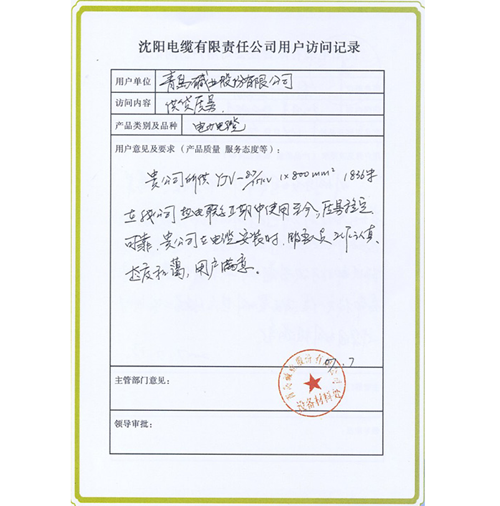 沈阳电缆有限责任公司用户访问记录
用户单位 青岛碱业股份有限公司
访问内容 供货质量
产品类别及品种 电力电缆
用户意见及要求（产品质量 服务态度等）：
贵公司所供 YJV-8.7/10KV 1×800mm² 1836米
在我公司热电联产工期中使用至今，质量稳定
可靠。贵公司在电缆安装时，服务人员工作认真、
态度和蔼，用户满意。
07.7
主管部门意见：
领导审批：